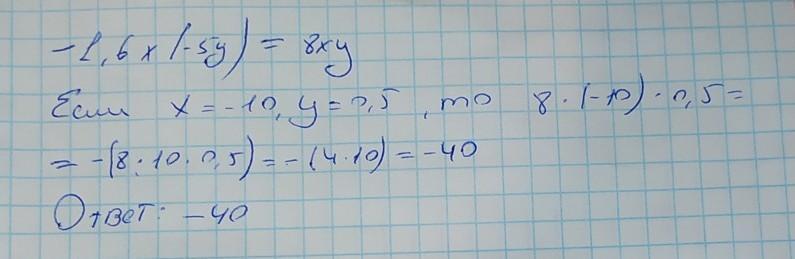 -1,6x(-5y) = 8xy
Если x = -10, y = 0,5, то 8·(-10)·0,5 =
= -(8·10·0,5) = -(4·10) = -40
Ответ: -40